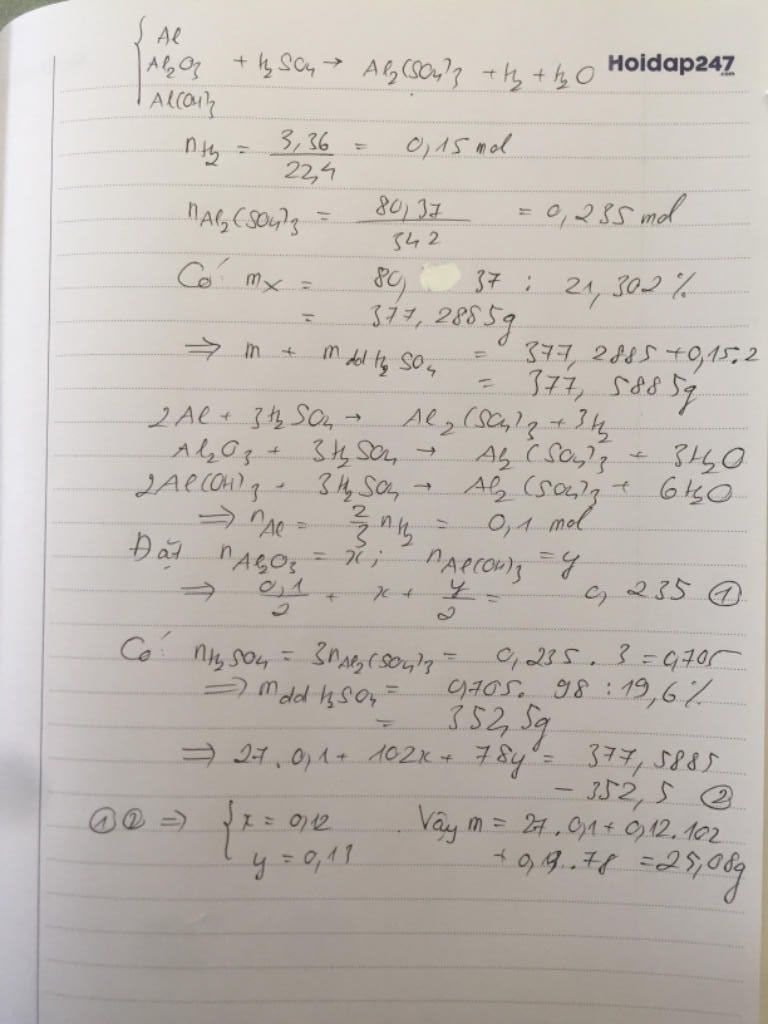 Al
Al₂O₃ + H₂SO₄ → Al₂(SO₄)₃ + H₂ + H₂O Hoidap247.com
Al(OH)₃
nH₂ = 3,36/22,4 = 0,15 mol
nAl₂(SO₄)₃ = 80,37/342 = 0,235 mol
Có mX = 80, 37 : 21,302%
= 377,2885g
⇒ m + mdd H₂SO₄ = 377,2885 + 0,15.2
= 377,5885g
2Al + 3H₂SO₄ → Al₂(SO₄)₃ + 3H₂
Al₂O₃ + 3H₂SO₄ → Al₂(SO₄)₃ + 3H₂O
2Al(OH)₃ + 3H₂SO₄ → Al₂(SO₄)₃ + 6H₂O
⇒ nAl = 2/3 nH₂ = 0,1 mol
Đặt nAl₂O₃ = x; nAl(OH)₃ = y
⇒ 0,1/2 + x + y/2 = 0,235 ①
Có nH₂SO₄ = 3nAl₂(SO₄)₃ = 0,235 . 3 = 0,705
⇒ mdd H₂SO₄ = 0,705. 98 : 19,6%
= 352,5g
⇒ 27.0,1 + 102x + 78y = 377,5885
- 352,5 ②
①② ⇒ { x = 0,12 . Vậy m = 27.0,1 + 0,12.102
y = 0,13 + 0,13.78 = 25,08g